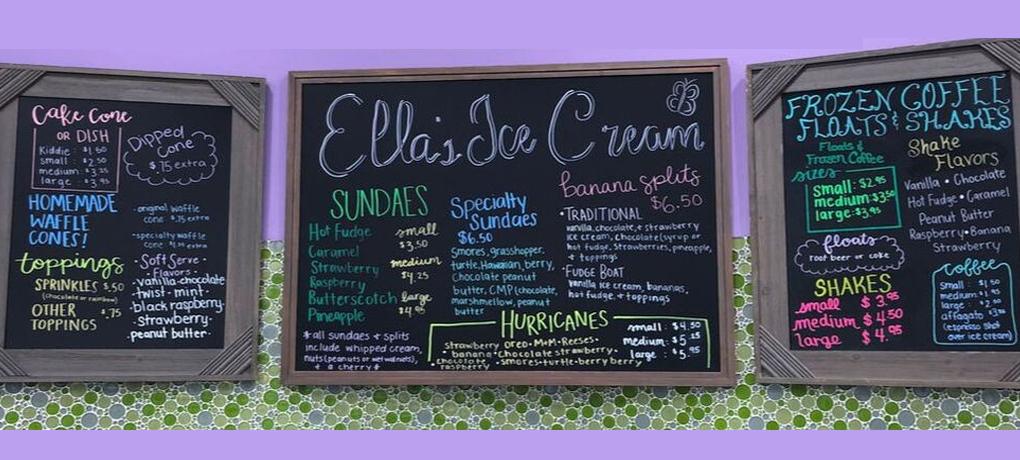 Cake Cone
OR DISH
Kiddie : $1.50
small : $2.50
medium : $3.25
large : $3.95
Dipped
Cone
$.75 extra
HOMEMADE
WAFFLE
CONES!
-original waffle
cone $.75 extra
-specialty waffle
cone
toppings
SPRINKLES $.50
(chocolate or rainbow)
OTHER $.75
TOPPINGS
•Soft Serve•
Flavors•
•vanilla•chocolate
•twist•mint•
•black raspberry•
•strawberry•
•peanut butter•
Ella's Ice Cream
SUNDAES
Hot Fudge
Caramel
Strawberry
Raspberry
Butterscotch
Pineapple
small
$3.50
medium
$4.25
large
$4.95
Specialty
Sundaes
$6.50
Smores, grasshopper,
turtle, Hawaiian, berry,
chocolate peanut
butter, CMP (chocolate,
marshmellow, peanut
butter
banana splits
$6.50
•TRADITIONAL
vanilla, chocolate, & strawberry
ice cream, chocolate (syrup or
hot fudge, strawberries, pineapple,
+ toppings
•FUDGE BOAT
Vanilla ice cream, bananas,
hot fudge, + toppings
*all sundaes + splits
include whipped cream,
nuts (peanuts or wet walnuts),
+ a cherry*
HURRICANES
strawberry oreo•M&M•Reeses•
•banana•chocolate strawberry•
•chocolate raspberry •smores•turtle•berry berry
small : $4.50
medium : $5.25
large : $5.95
FROZEN COFFEE
FLOATS & SHAKES
Floats &
Frozen Coffee
sizes
small: $2.95
medium: $3.50
large: $3.95
Shake
Flavors
Vanilla • Chocolate
Hot Fudge • Caramel
Peanut Butter
Raspberry • Banana
Strawberry
floats
root beer or coke
SHAKES
small $3.95
medium $4.50
large $4.95
coffee
small : $1.50
medium: $1.95
large : $2.50
affagato $3.50
(espresso shot
over ice cream)